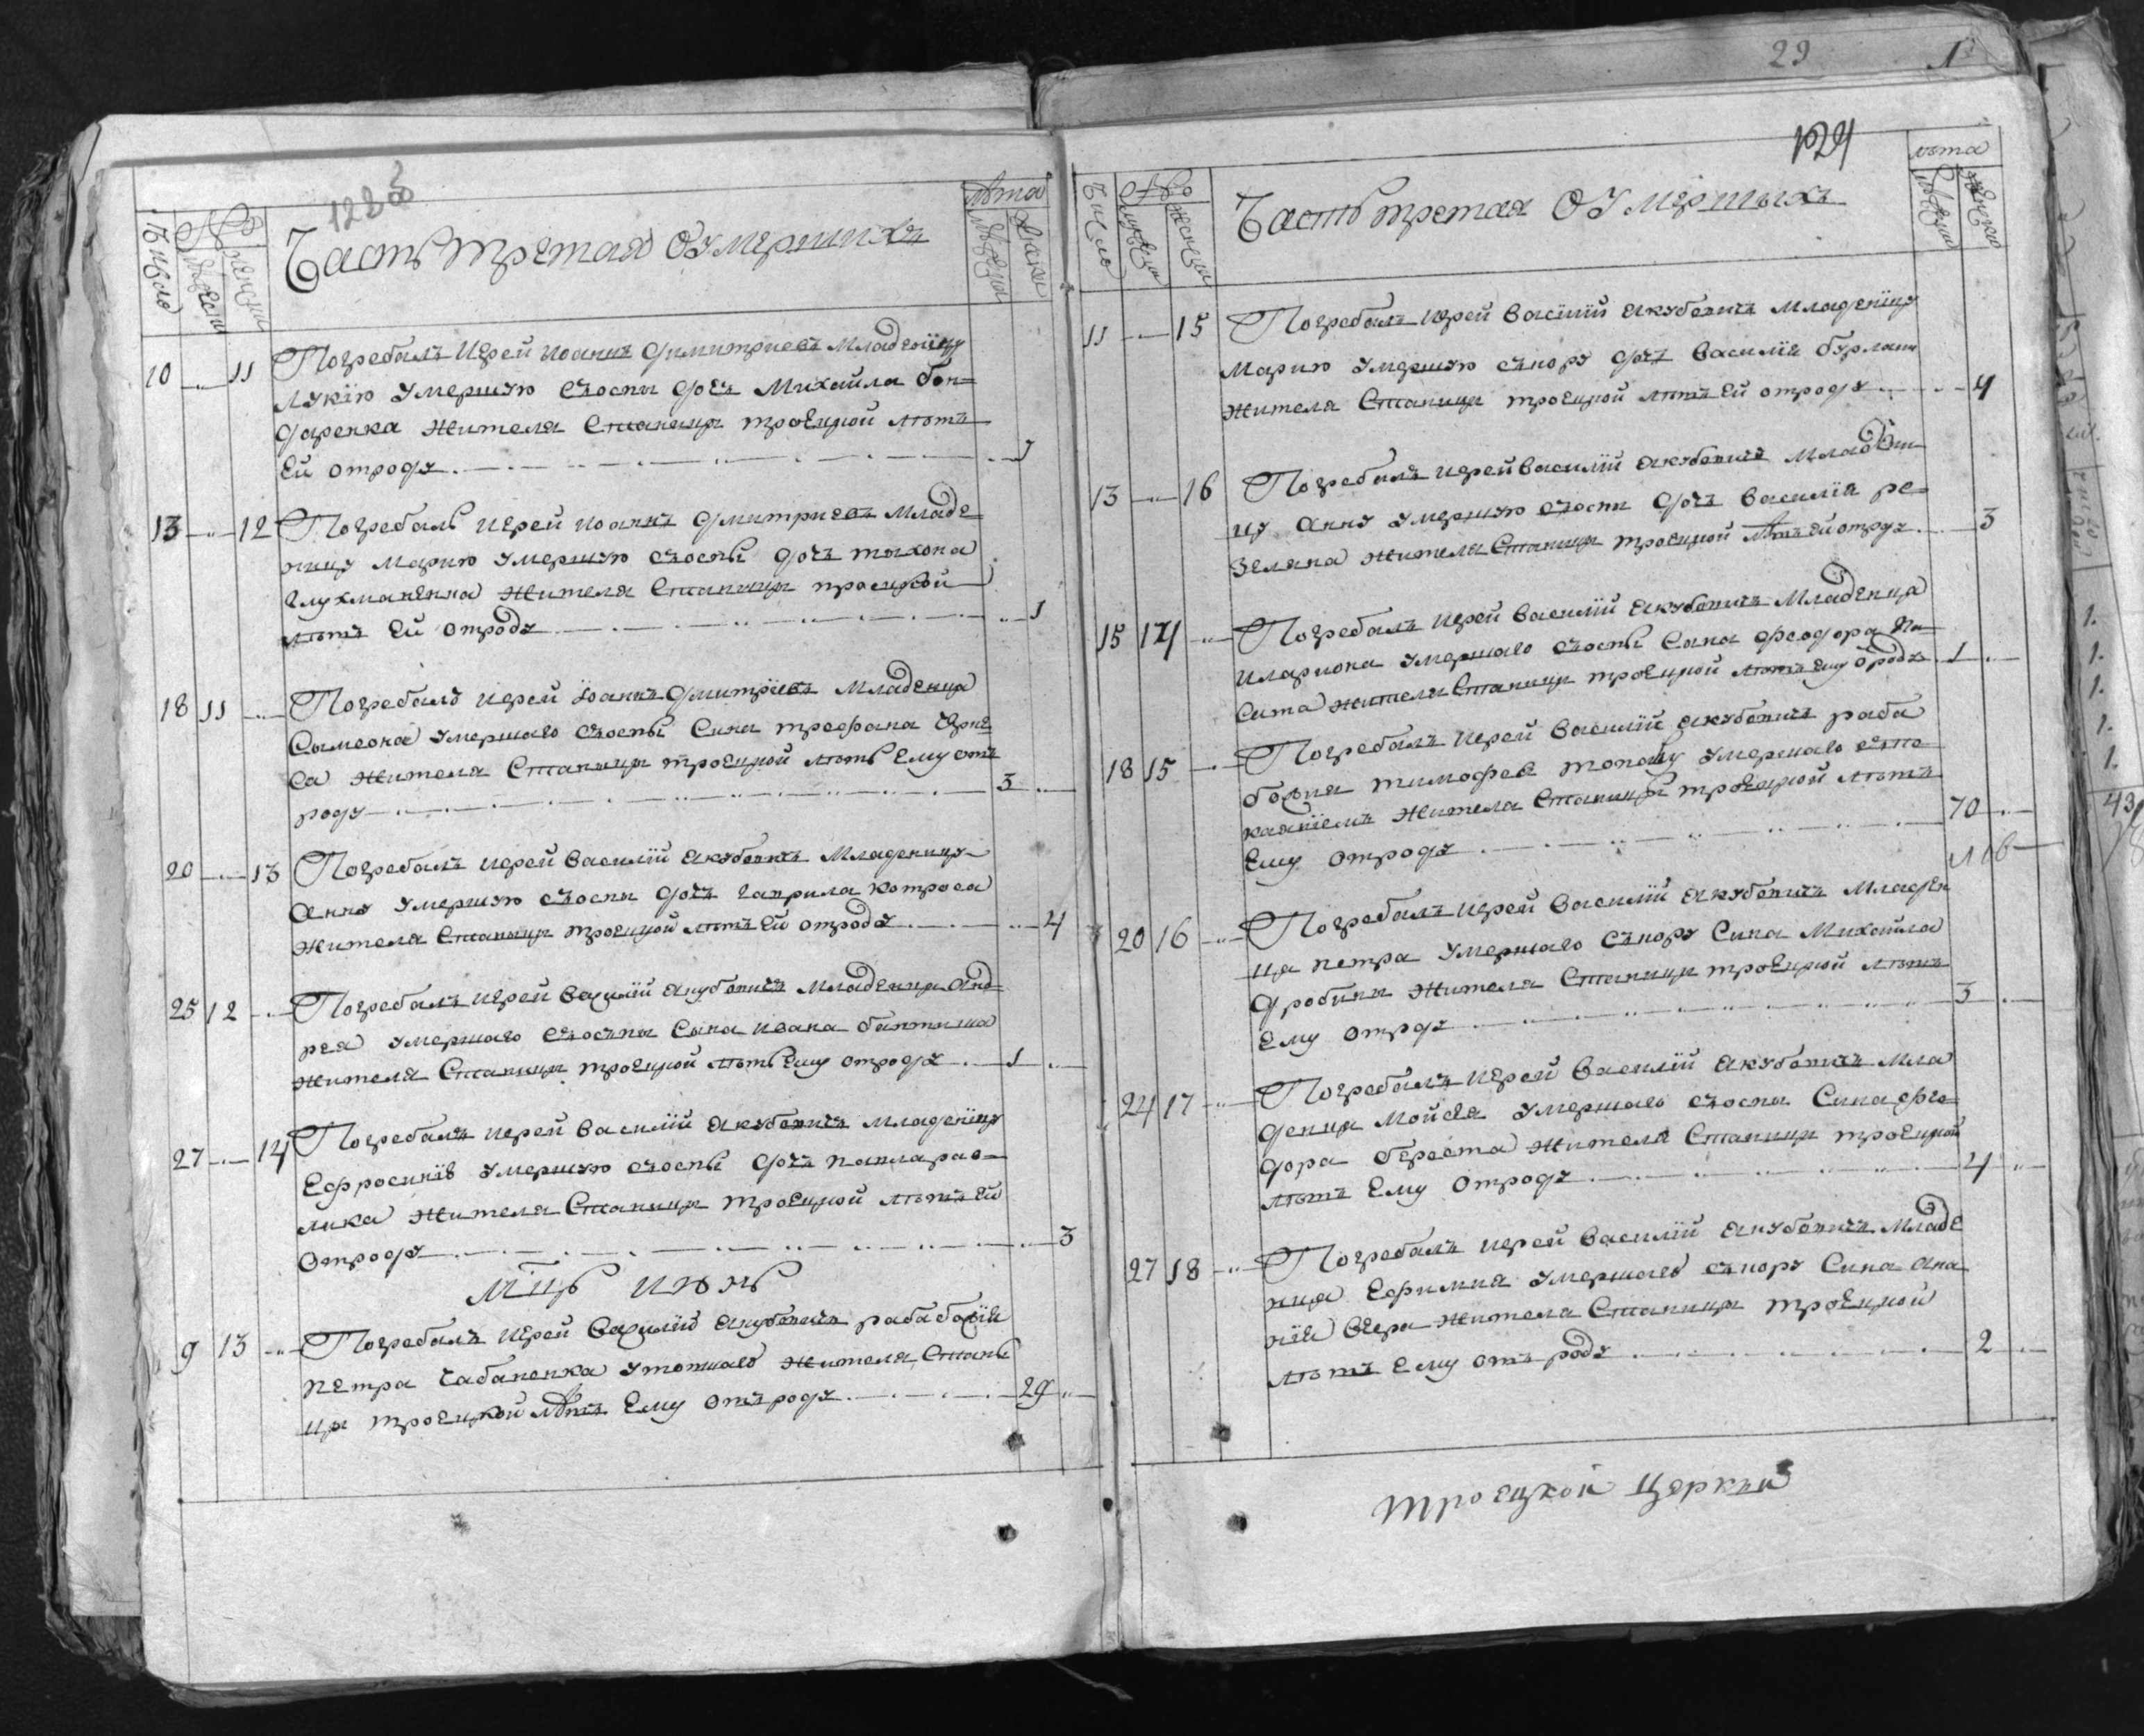 Часть третая О умерших
лѣта
Число
10 11 Погребалъ Иерей Иоаннъ Димитриевъ Младеницу
Лукію умершую съоспи дочъ Михайла бон=
даренка жителя Станици троецкой лѣтъ
Ей отроду 1
13 12 Погребалъ иерей иоаннъ дмитриевъ Младе=
ницу Марию умершую съоспы дочъ тихона
жителя Станици троецкой
лѣтъ Ей отроду 1
18 11 Погребалъ иерей Иоаннъ дмитріевъ Младенца
Сымеона умершаго съоспы Сина трофана
са жителя Станици троецкой лѣтъ Ему отъ
роду 3
20 13 Погребалъ иерей василій якубовичъ Младеницу
Анну умершую съоспи дочъ гаврила котроса
жителя Станици троецкой лѣтъ Ей отроду 4
25 12 Погребалъ иерей василій якубовичъ Младенца Анд=
рея умершаго съоспи Сына ивана
жителя Станици троецкой лѣтъ Ему отроду 1
27 14 Погребалъ иерей василій якубовичъ младеницу
Ефросинію умершую съоспы дочъ
лика жителя Станици троецкой лѣтъ Ей
отроду 3
мцъ июнь
9 13 Погребалъ иерей василій якубовичъ раба божія
петра Чабаненка утопшаго жителя Стани
ци троецкой лѣтъ Ему отъроду 29
29
Часть третая О Умершихъ
лѣта
Число
11 15 Погребалъ иерей василій якубовичъ младеницу
Марию умершую съпору дочъ василія бурлаки
жителя Станици троецкой лѣтъ Ей отроду 4
13 16 Погребалъ иерей василій якубовичъ младени
цу анну умершую съоспи дочъ василія ре
зеляна жителя Станици троецкой лѣтъ Ей отроду 3
15 14 Погребалъ иерей василій якубовичъ Младенца
илариона умершаго съоспы Сына феодора
Сита жителя Станици троецкой лѣтъ Ему отроду 1
18 15 Погребалъ иерей василій якубовичъ раба
божия тимофея умершаго съпо
каяніемъ жителя Станици троецкой лѣтъ
Ему отроду 70
20 16 Погребалъ иерей василій якубовичъ Младен
ца петра умершаго съпору Сина Михайла
дробини жителя Станици троецкой лѣтъ
Ему отроду 3
24 17 Погребалъ иерей василій якубовичъ мла
денца Мойсея умершаго съоспи Сина фео
дора береста жителя Станици троецкой
лѣтъ Ему отроду 4
27 18 Погребалъ иерей василій якубовичъ Младе
нца Ефимия умершаго съпору Сина Ана
нія жителя Станици троецкой
лѣтъ Ему отъ роду 2
троецкой церкви